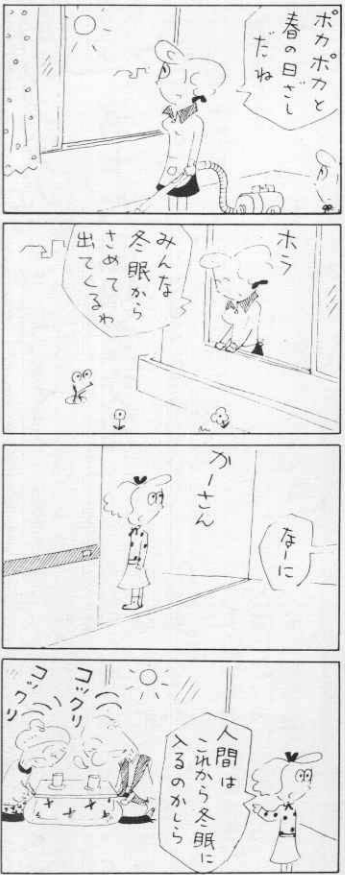 ポカポカと
春の日ざし
だね
ホラ
みんな
冬眠から
さめて
出てくるわ
かーさん
なーに
人間は
これから冬眠に
入るのかしら
コックリ
コックリ